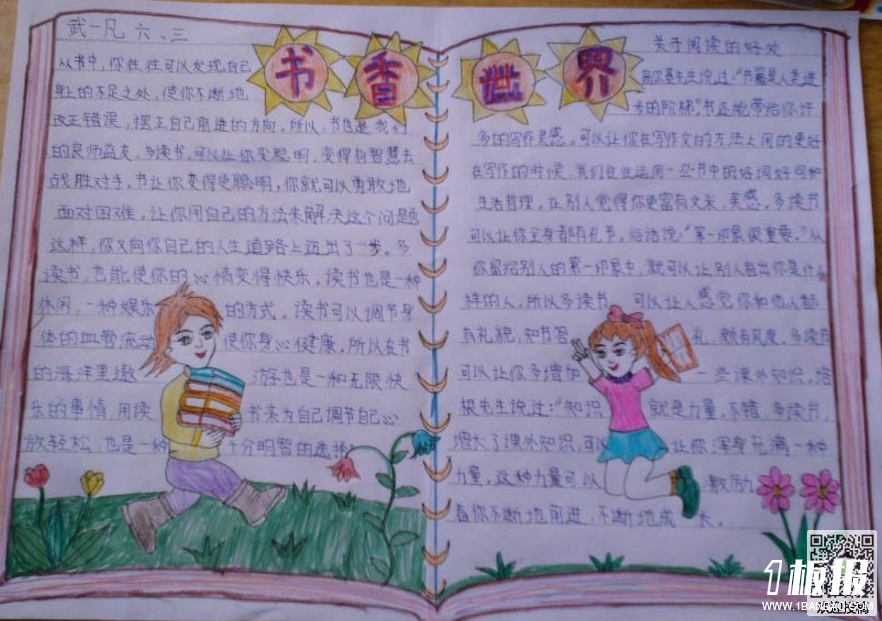 武一凡 六、三
书香世界
从书中,你往往可以发现自己
身上的不足之处,使你不断地
改正错误,摆正自己前进的方向,所以,书也是我们
的良师益友,多读书,可以让你变聪明,变得有智慧去
战胜对手,书让你变得更聪明,你就可以勇敢地
面对困难,让你用自己的方法来解决这个问题
这样,你又向你自己的人生道路上迈出了一步。多
读书,也能使你的心情变得快乐,读书也是一种
休闲,一种娱乐的方式,读书可以调节身
体的血管流动使你身心健康,所以在书
的海洋里遨游也是一种无限快
乐的事情,用读书来为自己调节自己心
放轻松,也是一种十分明智的选择
关于阅读的好处
高尔基先生说过:“书籍是人类进
步的阶梯。”书还能带给你许
多的写作灵感,可以让你在写作文的方法上用的更好
在写作的时候,我们往往运用一些书中的好词好句和
生活哲理,让别人觉得你更富有文采,美感,多读书
可以让你全身都有礼节,俗话说:“第一印象很重要。”从
你留给别人的第一印象中,就可以让别人看出你是什么
样的人,所以多读书,可以让人感觉你和他人都
有礼貌,知书答礼,颇有风度,多读书
可以让你多增加一些课外知识,培
根先生说过:“知识就是力量,不错,多读书,
增长了课外知识,可以让你浑身充满一种
力量,这种力量可以激励
着你不断地前进,不断地成长。
1板报
WWW.1BANBAO.COM